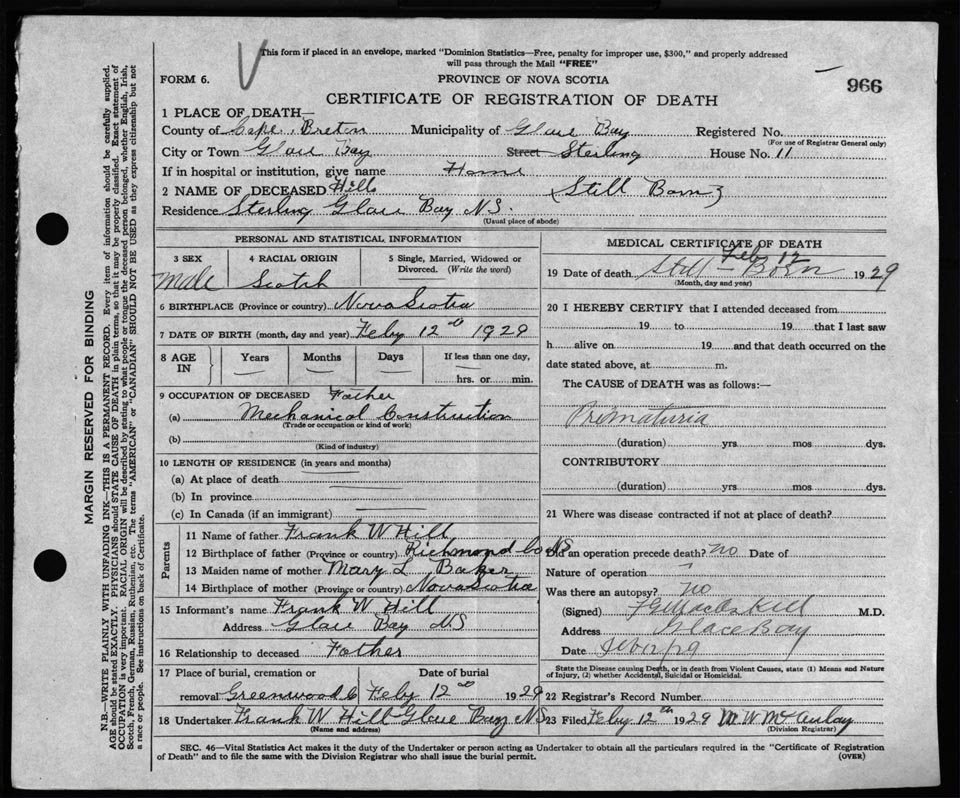 This form if placed in an envelope, marked "Dominion Statistics—Free, penalty for improper use, $300," and properly addressed
will pass through the Mail "FREE"
FORM 6. PROVINCE OF NOVA SCOTIA
966
CERTIFICATE OF REGISTRATION OF DEATH
1 PLACE OF DEATH—
County of Cape Breton Municipality of Glace Bay Registered No.
(For use of Registrar General only)
City or Town Glace Bay Street Sterling House No. 11
If in hospital or institution, give name Home
2 NAME OF DECEASED Hill (Still Born)
Residence Sterling Glace Bay N.S.
(Usual place of abode)
PERSONAL AND STATISTICAL INFORMATION
3 SEX 4 RACIAL ORIGIN 5 Single, Married, Widowed or
Divorced. (Write the word)
Male Scotch
6 BIRTHPLACE (Province or country) Nova Scotia
7 DATE OF BIRTH (month, day and year) Feby 12th 1929
8 AGE IN Years Months Days If less than one day,
hrs. or min.
9 OCCUPATION OF DECEASED Father
(a) Mechanical Construction
(Trade or occupation or kind of work)
(b)
(Kind of industry)
10 LENGTH OF RESIDENCE (in years and months)
(a) At place of death
(b) In province
(c) In Canada (if an immigrant)
Parents
11 Name of father Frank W Hill
12 Birthplace of father (Province or country) Richmond Co NS
13 Maiden name of mother Mary L Baker
14 Birthplace of mother (Province or country) Nova Scotia
15 Informant's name Frank W Hill
Address Glace Bay N.S
16 Relationship to deceased Father
17 Place of burial, cremation or Date of burial
removal Greenwood C Feby 12th 1929
18 Undertaker Frank W Hill Glace Bay NS
(Name and address)
MEDICAL CERTIFICATE OF DEATH
Feby 12
19 Date of death Still-Born 1929
(Month, day and year)
20 I HEREBY CERTIFY that I attended deceased from
19 to 19 that I last saw
h alive on 19 and that death occurred on the
date stated above, at m.
The CAUSE of DEATH was as follows:—
Prematuria
(duration) yrs mos dys.
CONTRIBUTORY
(duration) yrs mos dys.
21 Where was disease contracted if not at place of death?
Did an operation precede death? no Date of
Nature of operation
Was there an autopsy? no
(Signed) M.D.
Address Glace Bay
Date
State the Disease causing Death, or in death from Violent Causes, state (1) Means and Nature
of Injury, (2) whether Accidental, Suicidal or Homicidal.
22 Registrar's Record Number
23 Filed Feby 12th 1929 W McAulay
(Division Registrar)
SEC. 46—Vital Statistics Act makes it the duty of the Undertaker or person acting as Undertaker to obtain all the particulars required in the "Certificate of Registration
of Death" and to file the same with the Division Registrar who shall issue the burial permit. (OVER)
MARGIN RESERVED FOR BINDING
N.B.—WRITE PLAINLY WITH UNFADING INK—THIS IS A PERMANENT RECORD. Every item of information should be carefully supplied.
AGE should be stated EXACTLY. PHYSICIANS should STATE CAUSE OF DEATH in plain terms, so that it may be properly classified. Exact statement of
OCCUPATION is very important. RACIAL ORIGIN will be described by stating to what people or tongue the deceased person belonged, whether English, Irish,
Scotch, French, German, Russian, Ruthenian, etc. The terms "AMERICAN" or "CANADIAN" SHOULD NOT BE USED as they express citizenship but not
a race or people. See instructions on back of Certificate.